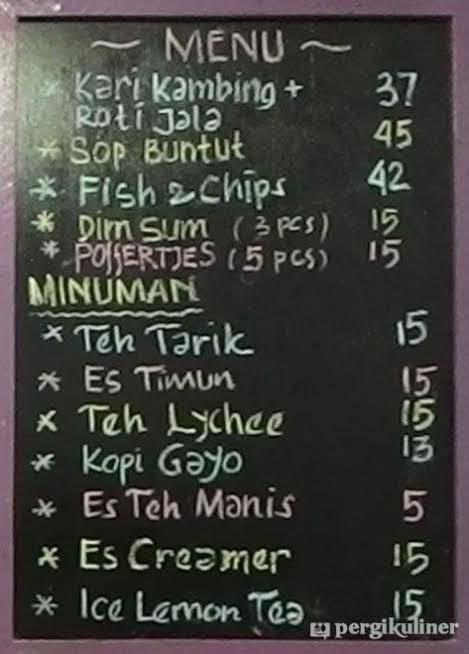 ~ MENU ~
* Kari Kambing + 37
Roti Jala
* Sop Buntut 45
* Fish & Chips 42
* Dim Sum (3 pcs) 15
* POffERTJES (5 pcs) 15
MINUMAN
* Teh Tarik 15
* Es Timun 15
* Teh Lychee 15
* Kopi Gayo 13
* Es Teh Manis 5
* Es Creamer 15
* Ice Lemon Tea 15
pergikuliner